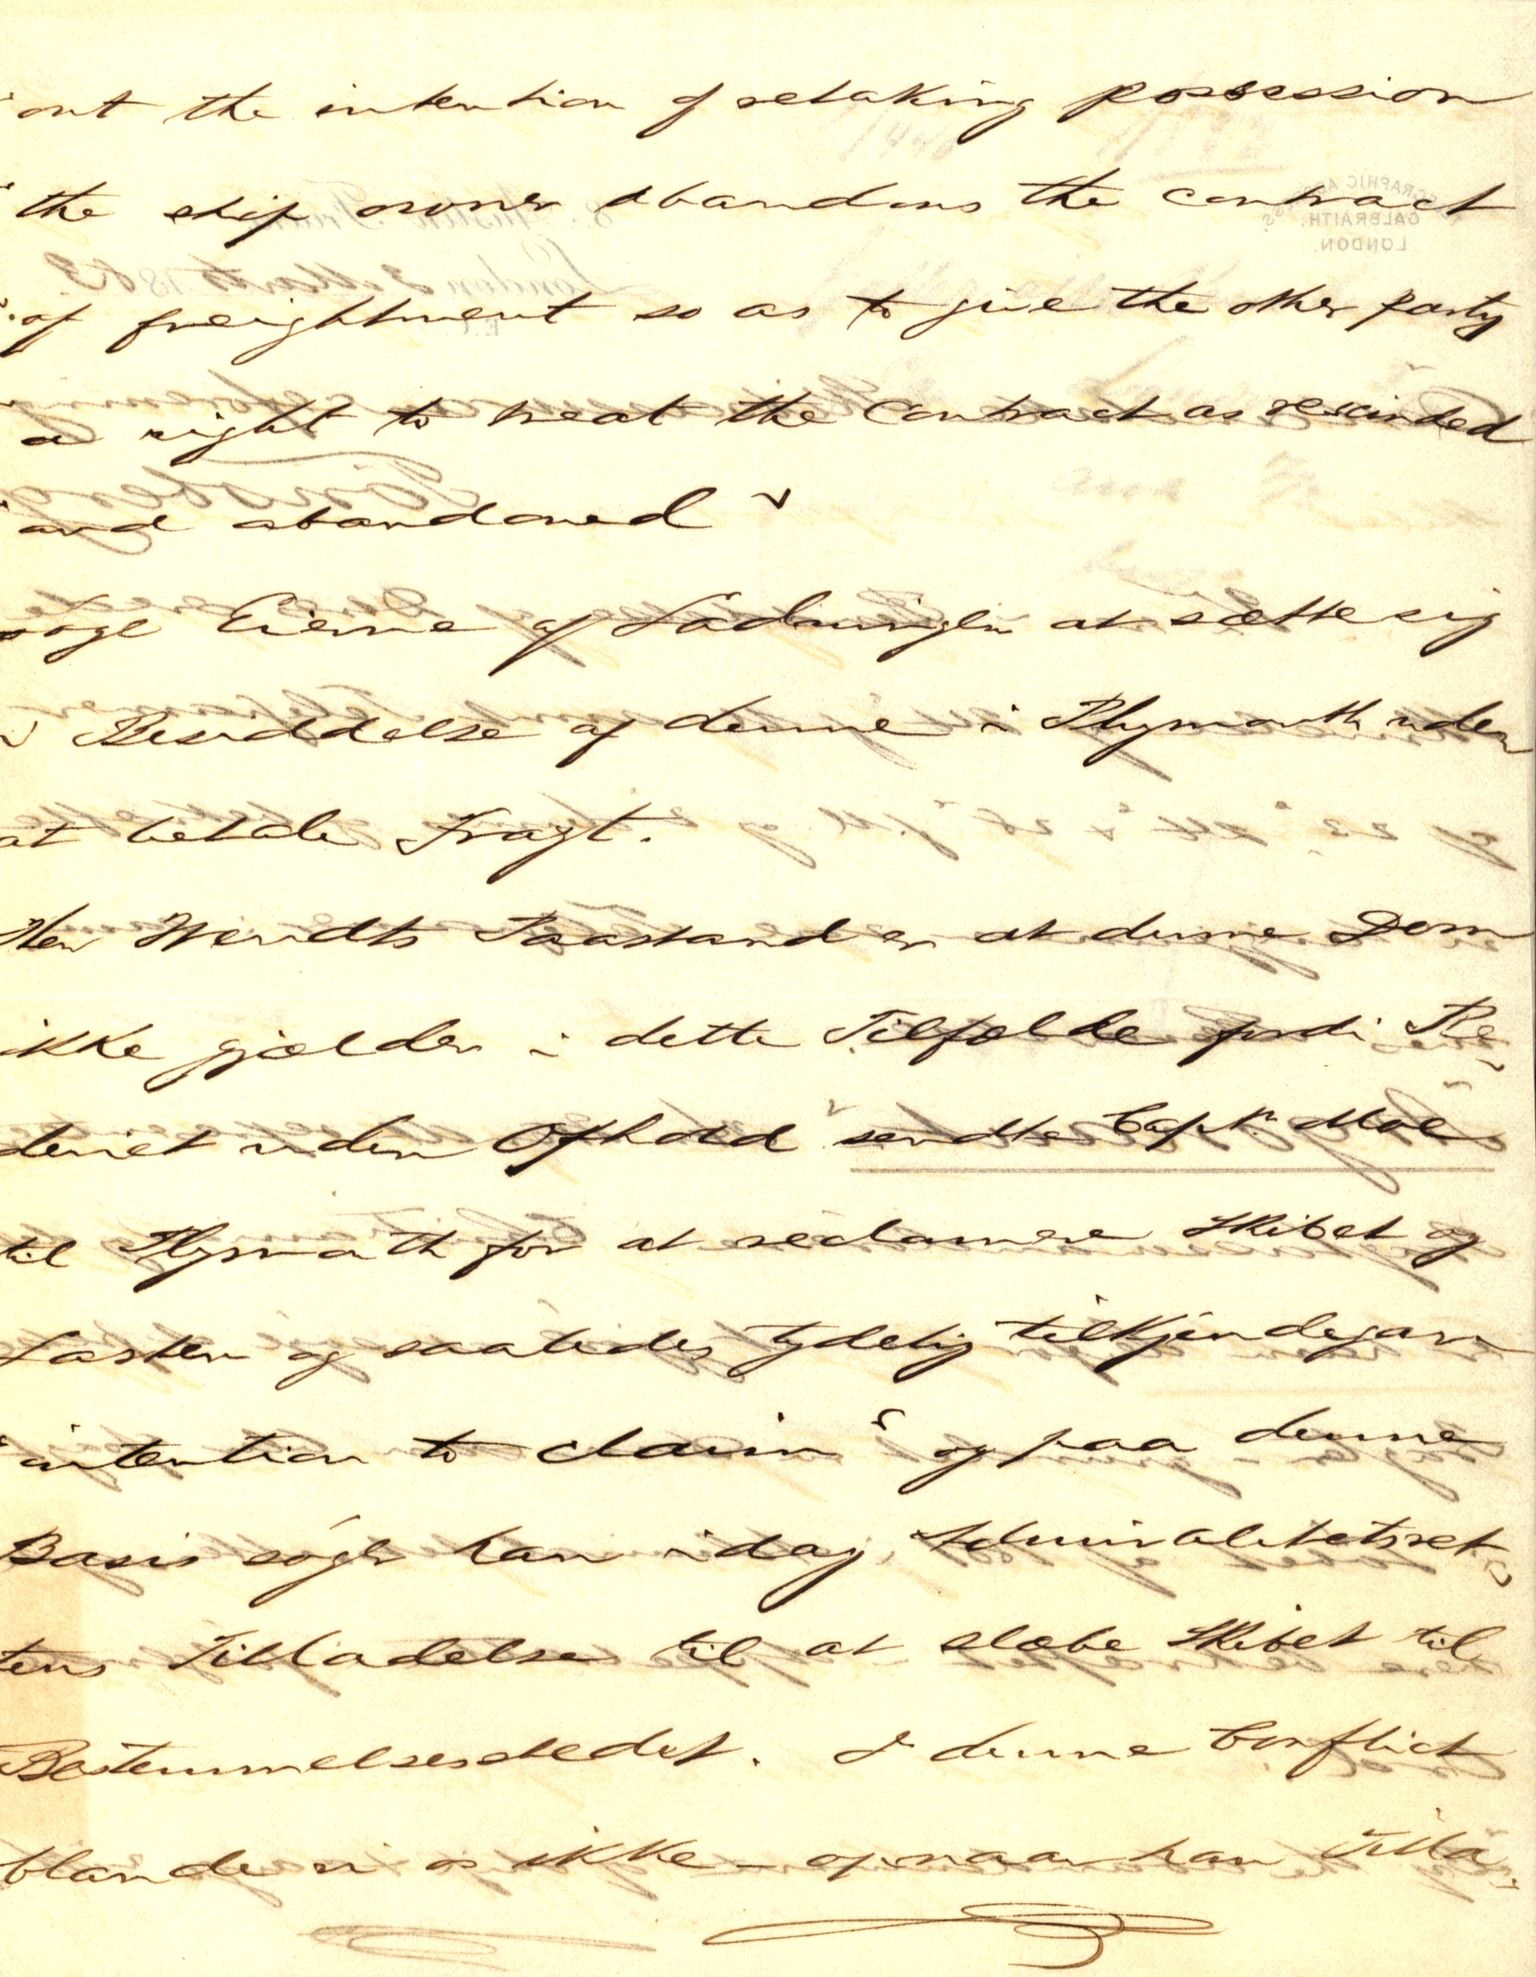 "out the intention of retaking possession
"the ship owner abandons the contract
"of freightment so as to give the other party
"a right to treat the Contract as rescinded
"and abandoned"
søge Eierne af Ladningen at sætte sig
i Besiddelse af denne i Plymouth uden
at betale Fragt.
Herr Wendts Paastand er at denne Dom
ikke gjælder i dette Tilfælde fordi Re-
deriet uden Ophold sendte Captn Moe
til Plymouth for at reclamere Skibet og
Lasten og saaledes tydelig tilkjendegav
"intention to claim" og paa denne
Basis søger han idag Admiralitetsret-
tens Tilladelse til at slæbe Skibet til
Bestemmelsesstedet. I denne Conflict
blande vi os ikke - opnaar han Tilla-